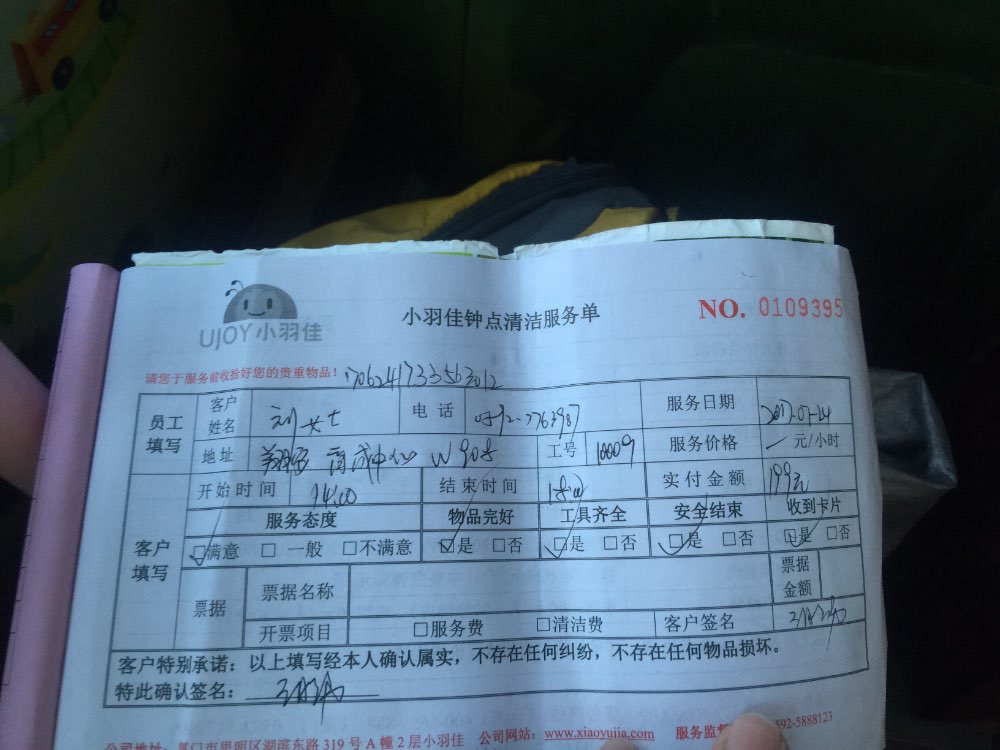 UJOY小羽佳
小羽佳钟点清洁服务单
NO. 0109395
请您于服务前收拾好您的贵重物品!
员工填写 客户姓名 刘女士 电话 服务日期
地址 工号 服务价格 元/小时
客户填写 开始时间 14:00 结束时间 18:00 实付金额 199元
服务态度 物品完好 工具齐全 安全结束 收到卡片
□满意 □一般 □不满意 □是 □否 □是 □否 □是 □否 □是 □否
票据 票据名称 票据金额
开票项目 □服务费 □清洁费 客户签名
客户特别承诺：以上填写经本人确认属实，不存在任何纠纷，不存在任何物品损坏。
特此确认签名：
公司地址：厦门市思明区湖滨东路 319 号 A 幢 2 层小羽佳 公司网站：www.xiaoyujia.com 服务监 592-5888123